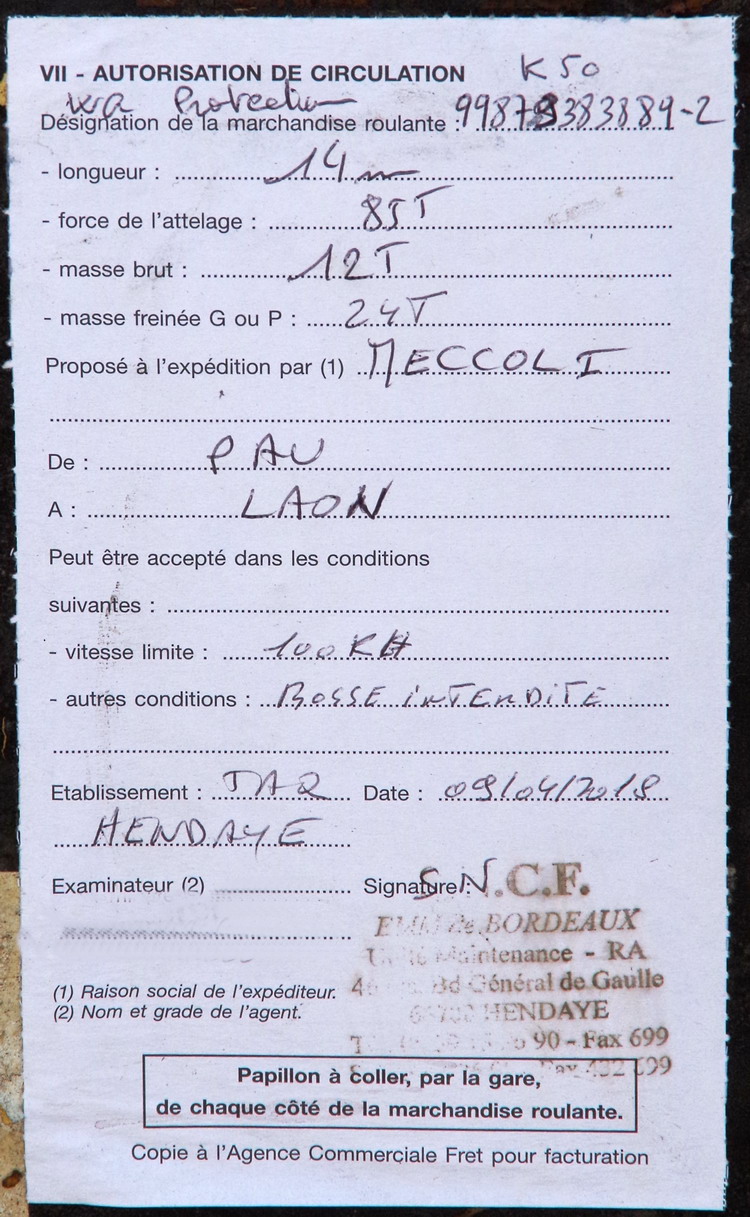 VII - AUTORISATION DE CIRCULATION K50
Protection
Désignation de la marchandise roulante : 99879383889-2
- longueur : 14 m
- force de l'attelage : 85T
- masse brut : 12T
- masse freinée G ou P : 24T
Proposé à l'expédition par (1) MECCOLI
De : PAU
A : LAON
Peut être accepté dans les conditions
suivantes :
- vitesse limite : 100KH
- autres conditions : BOSSE iNTERDiTE
Etablissement : Date : 09/04/2018
HENDAYE
Examinateur (2) Signature : S.N.C.F.
BORDEAUX
Maintenance - RA
(1) Raison social de l'expéditeur. Bd Général de Gaulle
(2) Nom et grade de l'agent. HENDAYE
90 - Fax 699
Papillon à coller, par la gare,
de chaque côté de la marchandise roulante.
Copie à l'Agence Commerciale Fret pour facturation